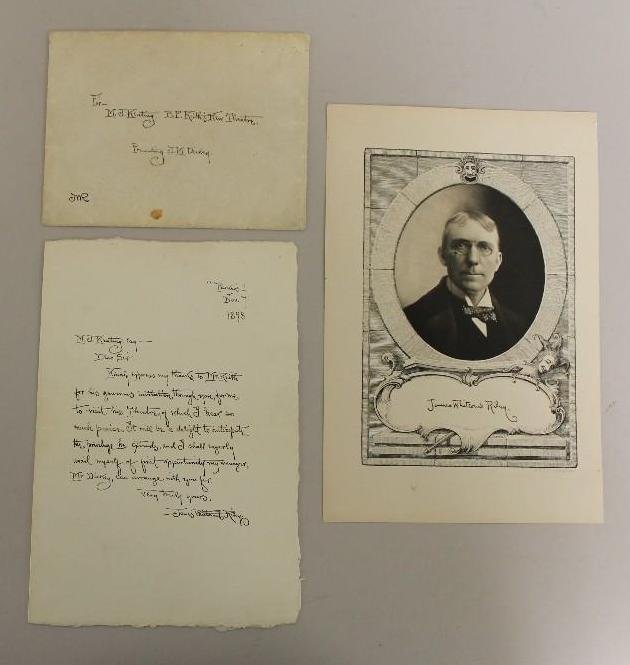 For—
M. J. Keating B. F. Keith's New Theatre.
J.M.
Dec.
1898
M. J. Keating, Esq.—
Dear Sir:
Kindly express my thanks to Mr. Keith
for his generous invitation through you, for me
to visit his Theatre, of which I hear so
much praise. It will be a delight to anticipate
the privilege he extends, and I shall eagerly
avail myself of first opportunity my manager,
Mr. can arrange with you for.
Very truly yours,
—James Whitcomb Riley.
James Whitcomb Riley.